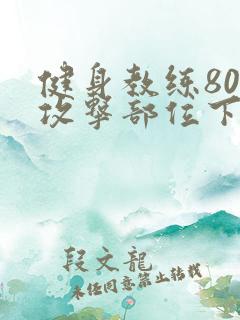 健身教练80
攻撃部位下
段文龍
未经同意禁止转载